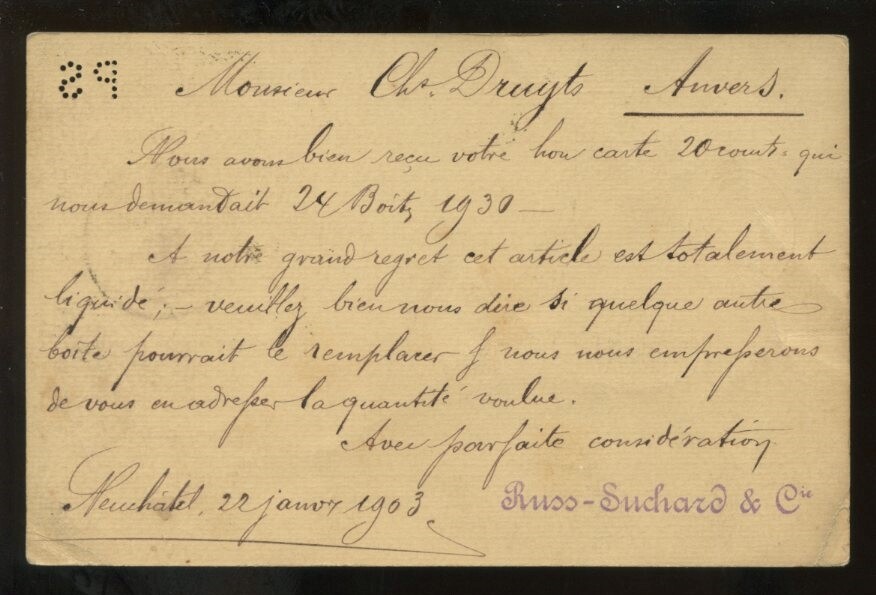 Monsieur Chs. Druyts Anvers.
Nous avons bien reçu votre hon carte 20 court. qui
nous demandait 24 Boîts 1930 —
A notre grand regret cet article est totalement
liquidé; — veuillez bien nous dire si quelque autre
boîte pourrait le remplacer & nous nous empresserons
de vous en adresser la quantité voulue.
Avec parfaite considération
Neuchâtel, 22 janvr 1903
Russ-Suchard & Cie